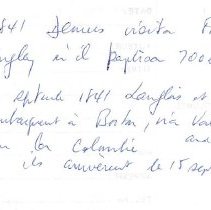 1841 Demers visita F
Langley où il baptisa 700
septembre 1841 Langlois et
embarquent à Boston, via Van
la Colombie
ils arrivèrent le 15 sep